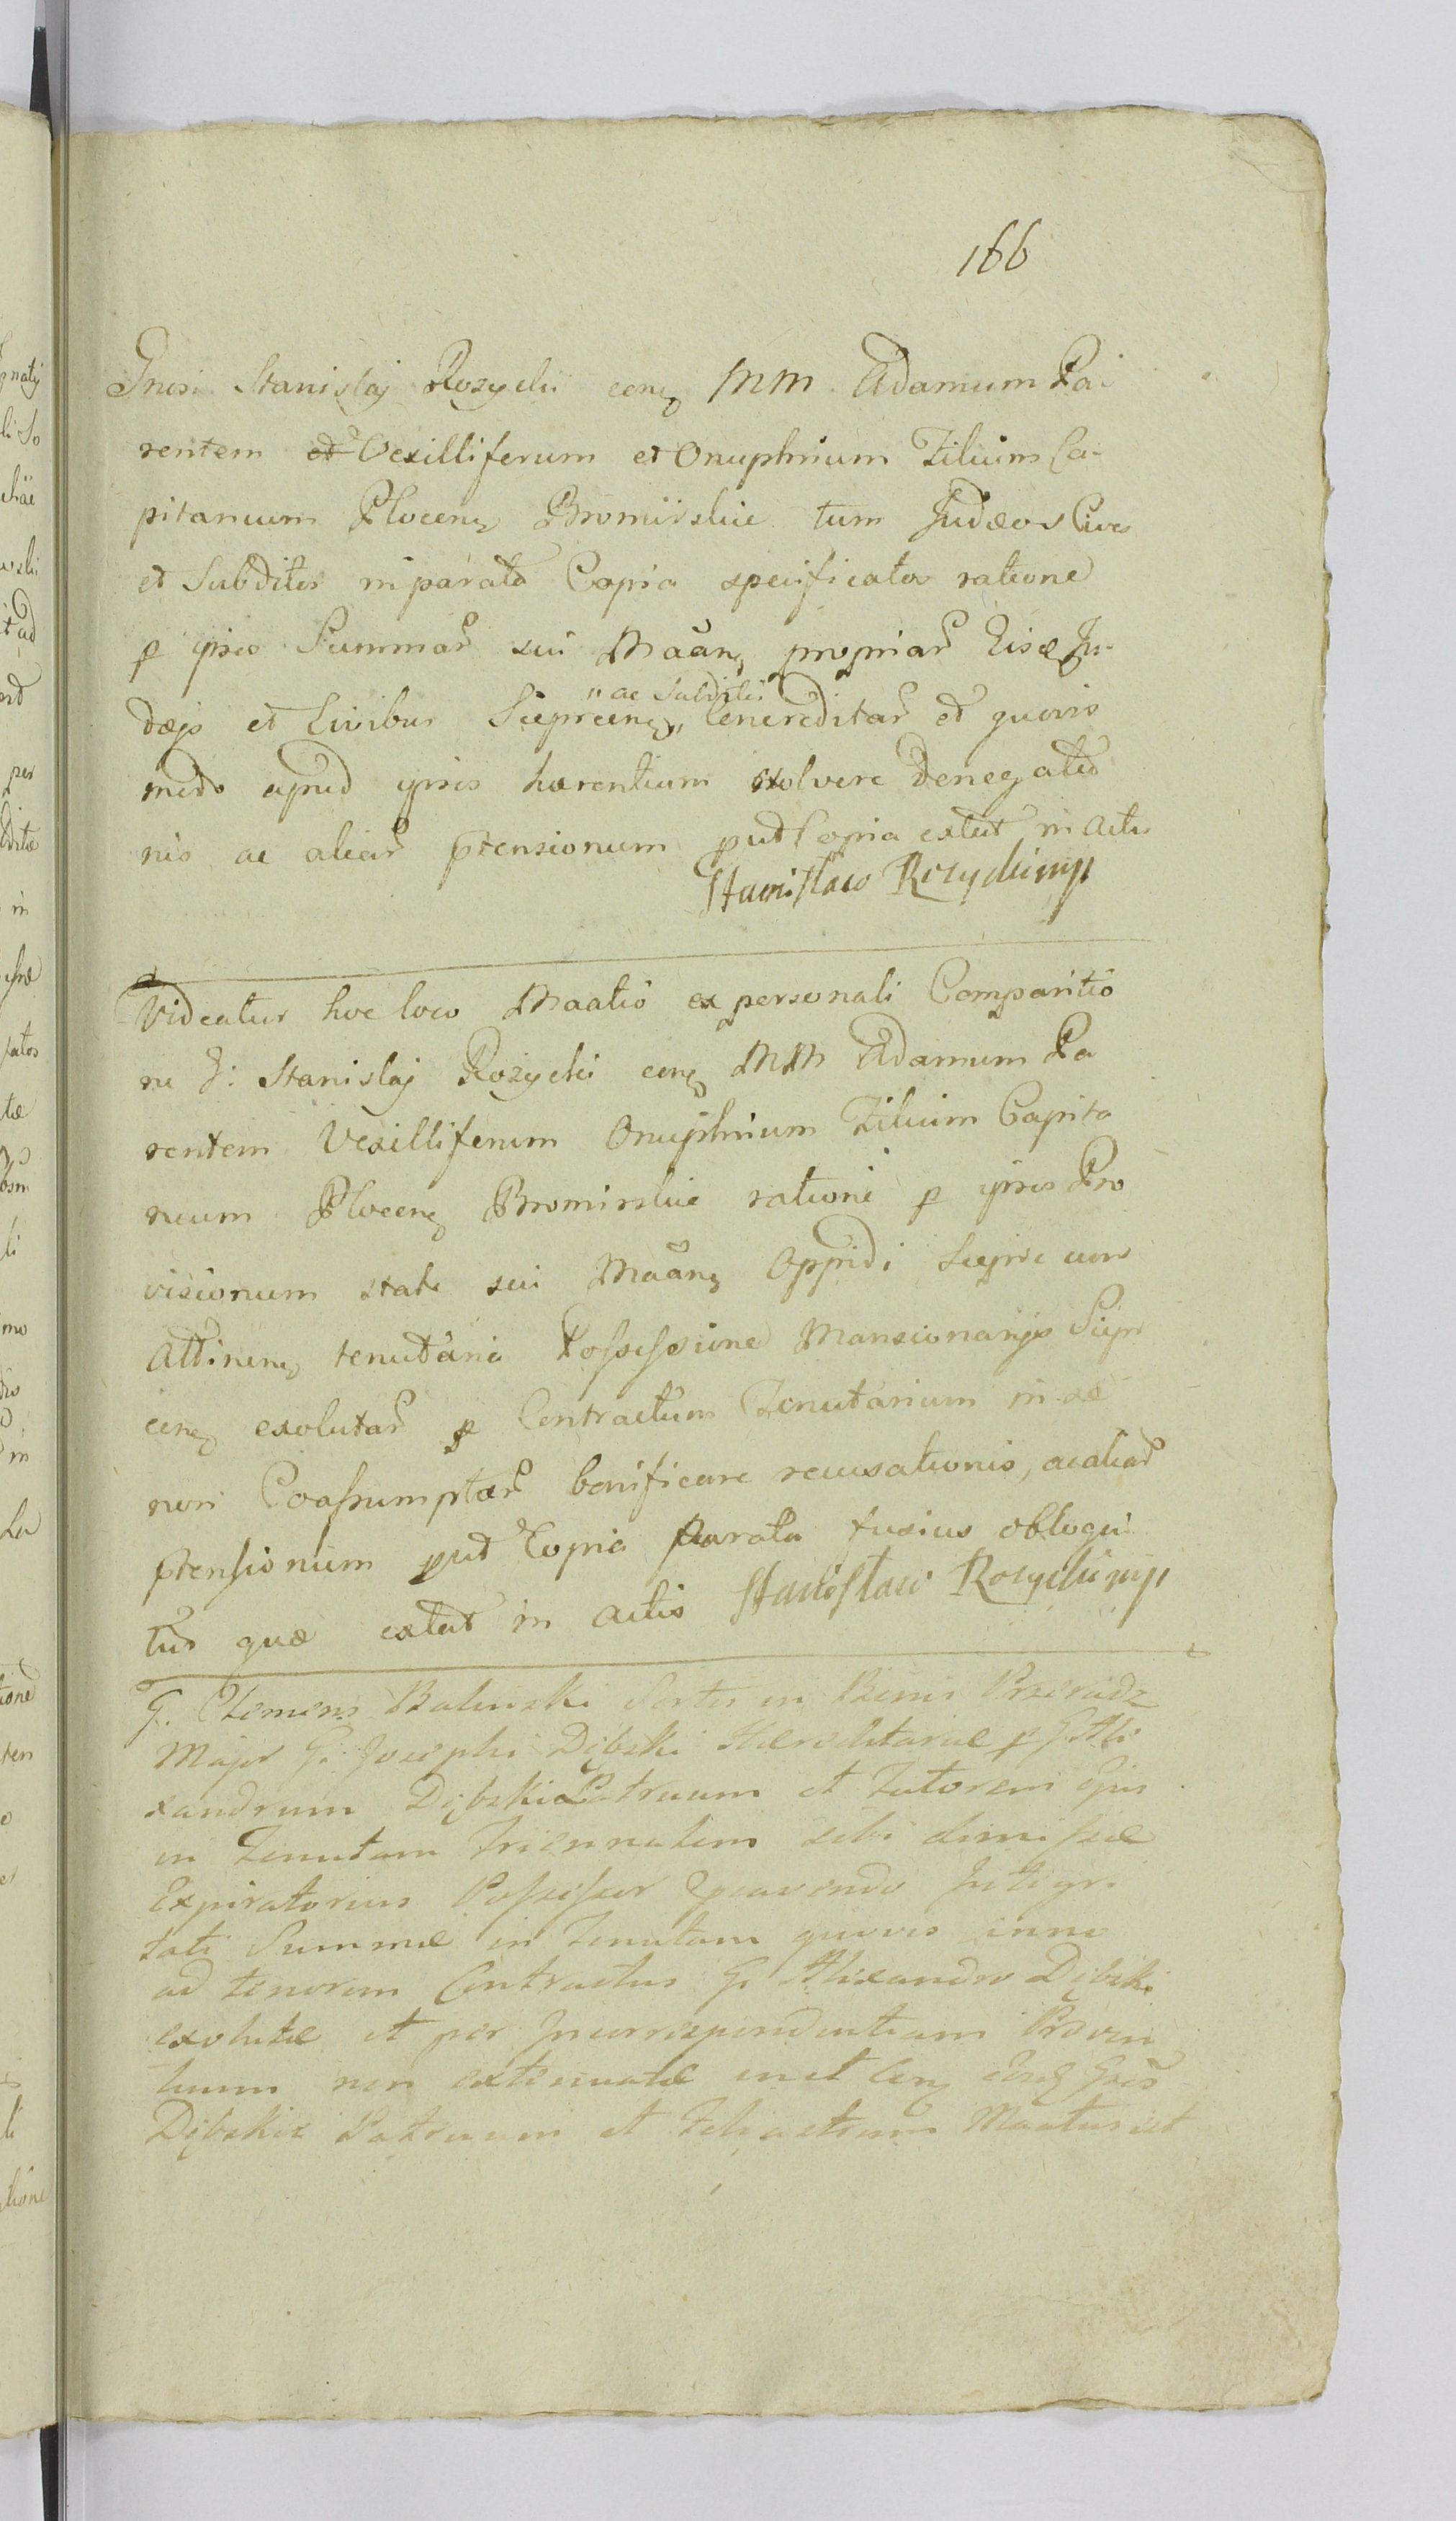 166
Gnosi Stanislaj Rozycki conq MM Adamum Pa-
rentem et Vexilliferum et Onuphrium Filium Ca-
pitaneum Plocenq Bromirskie tum Judæos Cives
et Subditos in parata Copia specificatos ratione
p ipsos Summar sui Maanq propriar Eisdæ Ju-
dæjs et Civibus Sieprcenq " ac Subditis " Concreditar et quovis
modo apud ipsos hærentium exolvere denegatio
nis ac aliar ptensionum put Copia extat in Actis
Stanisław Rozycki mp
Videatur hoc loco Maatio ex personali Comparitio
ne G: Stanislaj Rożycki conq MM Adamum Pa
rentem Vexilliferum Onuphrium Filium Capita
neum Plocenq Bromirskie ratione p ipsos Pro
visionum state sui Maanq Oppidi Sieprc cum
Attinenq tenutaria Possessione Mansionarijs Siepr
cenq exolutar p Contractum Tenutarium in se
non Coassumptar bonificare recusationis, ac aliar
ptensionum put Copia parata fusius obloqui
tur quæ extat in Actis Stanisław Rozycki mp
G. Clemens Balinski Sortis in Bonis
Major G. Josephi Dębski Hæreditariæ p G Ale
xandrum Dębski Patruum et Tutorem ejus
in Tenutam Triennalem sibi dimissæ
Expiratorius Possessor præcavendo Integri
tati Summæ in Tenutam quovis anno
ad tenorem Contractus G. Alexandro Dębski
exolutæ et per Incorrespondentiam Proven
tuum non extenuatæ
Dębskie Patruum et Maatus est